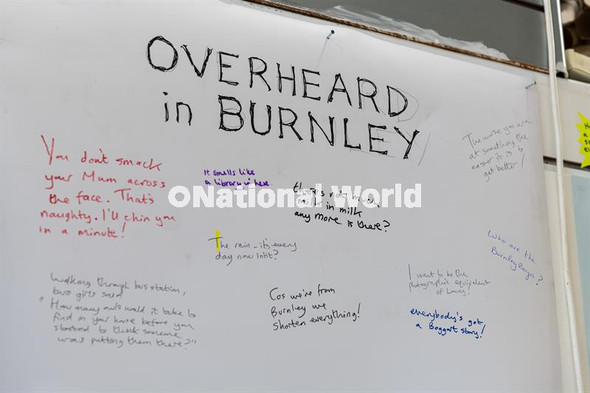 OVERHEARD
in BURNLEY
You don't smack
your Mum across
the face. That's
naughty. I'll chin you
in a minute!
It smells like
a library in here.
©National World
in milk
any more is there?
The worse you are
at something the
easier it is to
get better!
The rain - it's every
day now init?
Who are the
Burnley Boys?
Walking through bus station,
two girls said
"How many nuts would it take to
find in your house before you
started to think someone
was putting them there?"
Cos we're from
Burnley we
shorten everything!
I want to be the
photographic equivalent
of Lowry!
everybody's got
a Boggart story!